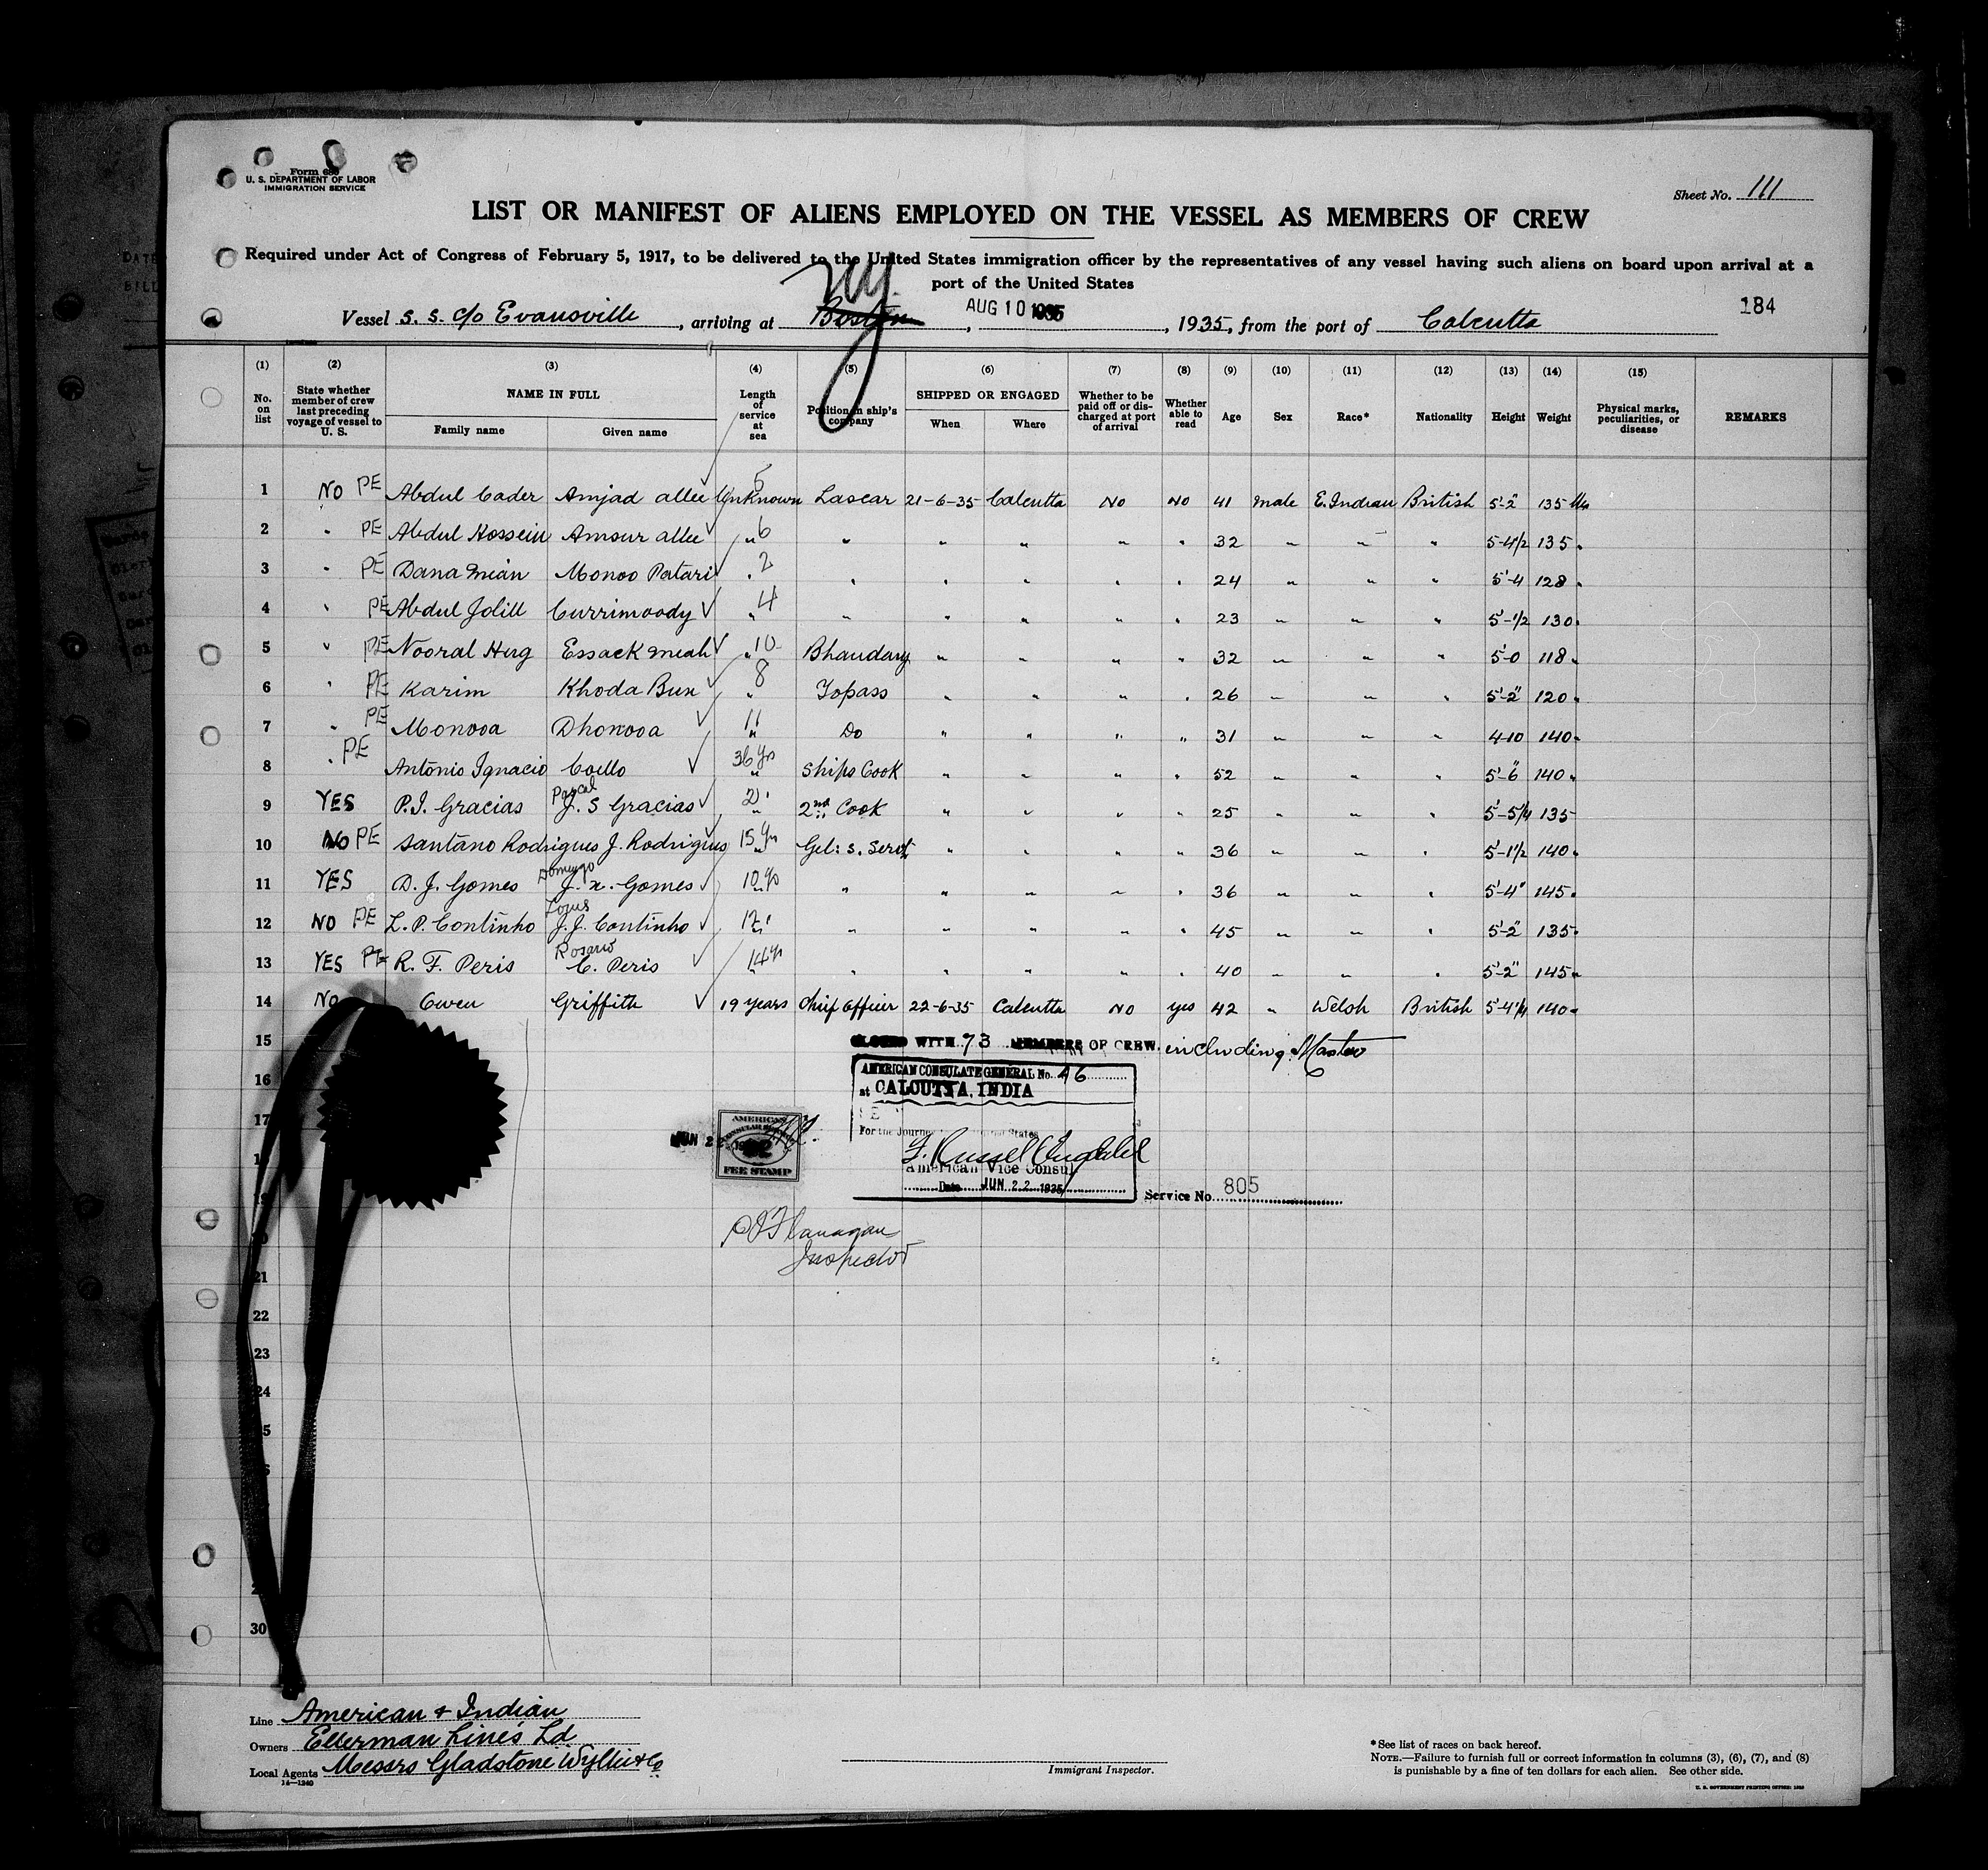 Form 680
U. S. DEPARTMENT OF LABOR
IMMIGRATION SERVICE
Sheet No. 111
LIST OR MANIFEST OF ALIENS EMPLOYED ON THE VESSEL AS MEMBERS OF CREW
Required under Act of Congress of February 5, 1917, to be delivered to the United States immigration officer by the representatives of any vessel having such aliens on board upon arrival at a
port of the United States
NY.
Vessel S. S. c/o Evansville, arriving at Boston, AUG 10 1935, 1935, from the port of Calcutta
184
(1) (2) (3) (4) (5) (6) (7) (8) (9) (10) (11) (12) (13) (14) (15)
No. on list
State whether member of crew last preceding voyage of vessel to U. S.
NAME IN FULL
Family name Given name
Length of service at sea
Position in ship's company
SHIPPED OR ENGAGED
When Where
Whether to be paid off or discharged at port of arrival
Whether able to read
Age Sex Race* Nationality Height Weight
Physical marks, peculiarities, or disease
REMARKS
1 No PE Abdul Cader Amjad allee Unknown 5 Lascar 21-6-35 Calcutta No No 41 male E. Indian British 5'-2" 135 lbs
2 " PE Abdul Hossein Amsur allee " 6 " " " " " 32 " " " 5-4 1/2 135 "
3 " PE Dana mian Monoo Patari " 2 " " " " " 24 " " " 5'-4 128 "
4 " PE Abdul Jolill Currimoody " 4 " " " " " 23 " " " 5'-1/2 130 "
5 " PE Nooral Hug Essack meah " 10 Bhandary " " " " 32 " " " 5'-0 118 "
6 " PE Karim Khoda Bux " 8 Topass " " " " 26 " " " 5'-2" 120 "
7 " PE Monooa Dhonooa " 11 Do " " " " 31 " " " 4-10 140 "
8 " PE Antonio Ignacio Coello 36 yrs " Ships Cook " " " " 52 " " " 5'-6" 140 "
9 YES P.I. Gracias Pascal J. S Gracias 2' " 2nd Cook " " " " 25 " " " 5'-5 1/4 135
10 No PE Santano Rodrigues J. Rodrigues 15 yrs " Gel: S. Servt. " " " " 36 " " " 5'-1 1/2 140 "
11 YES D. J. Gomes Domingo J. x. Gomes 10 yrs " " " " " " 36 " " " 5'-4" 145 "
12 NO PE L. P. Continho J. J. Continho 12' " " " " " " 45 " " " 5'-2" 135 "
13 YES PE R. F. Peris Rosario C. Peris 14 yrs " " " " " " 40 " " " 5'-2" 145 "
14 No Owen Griffith 19 years Chief Officer 22-6-35 Calcutta No yes 42 " Welsh British 5'-4 1/4 140 "
15 CLOSED WITH 73 MEMBERS OF CREW. including Master
16
AMERICAN CONSULATE GENERAL No. 46
at CALCUTTA, INDIA
17
For the Journey States
JUN 22
AMERICAN
CONSULAR
FEE STAMP
American Vice Consul
Date JUN 22 1935
Service No. 805
19
Flanagan
Inspector
21
22
23
24
30
Line American & Indian
Owners Ellerman Line's Ld
Local Agents Messrs Gladstone Wyllie & Co.
14—1240
Immigrant Inspector.
*See list of races on back hereof.
NOTE.—Failure to furnish full or correct information in columns (3), (6), (7), and (8)
is punishable by a fine of ten dollars for each alien. See other side.